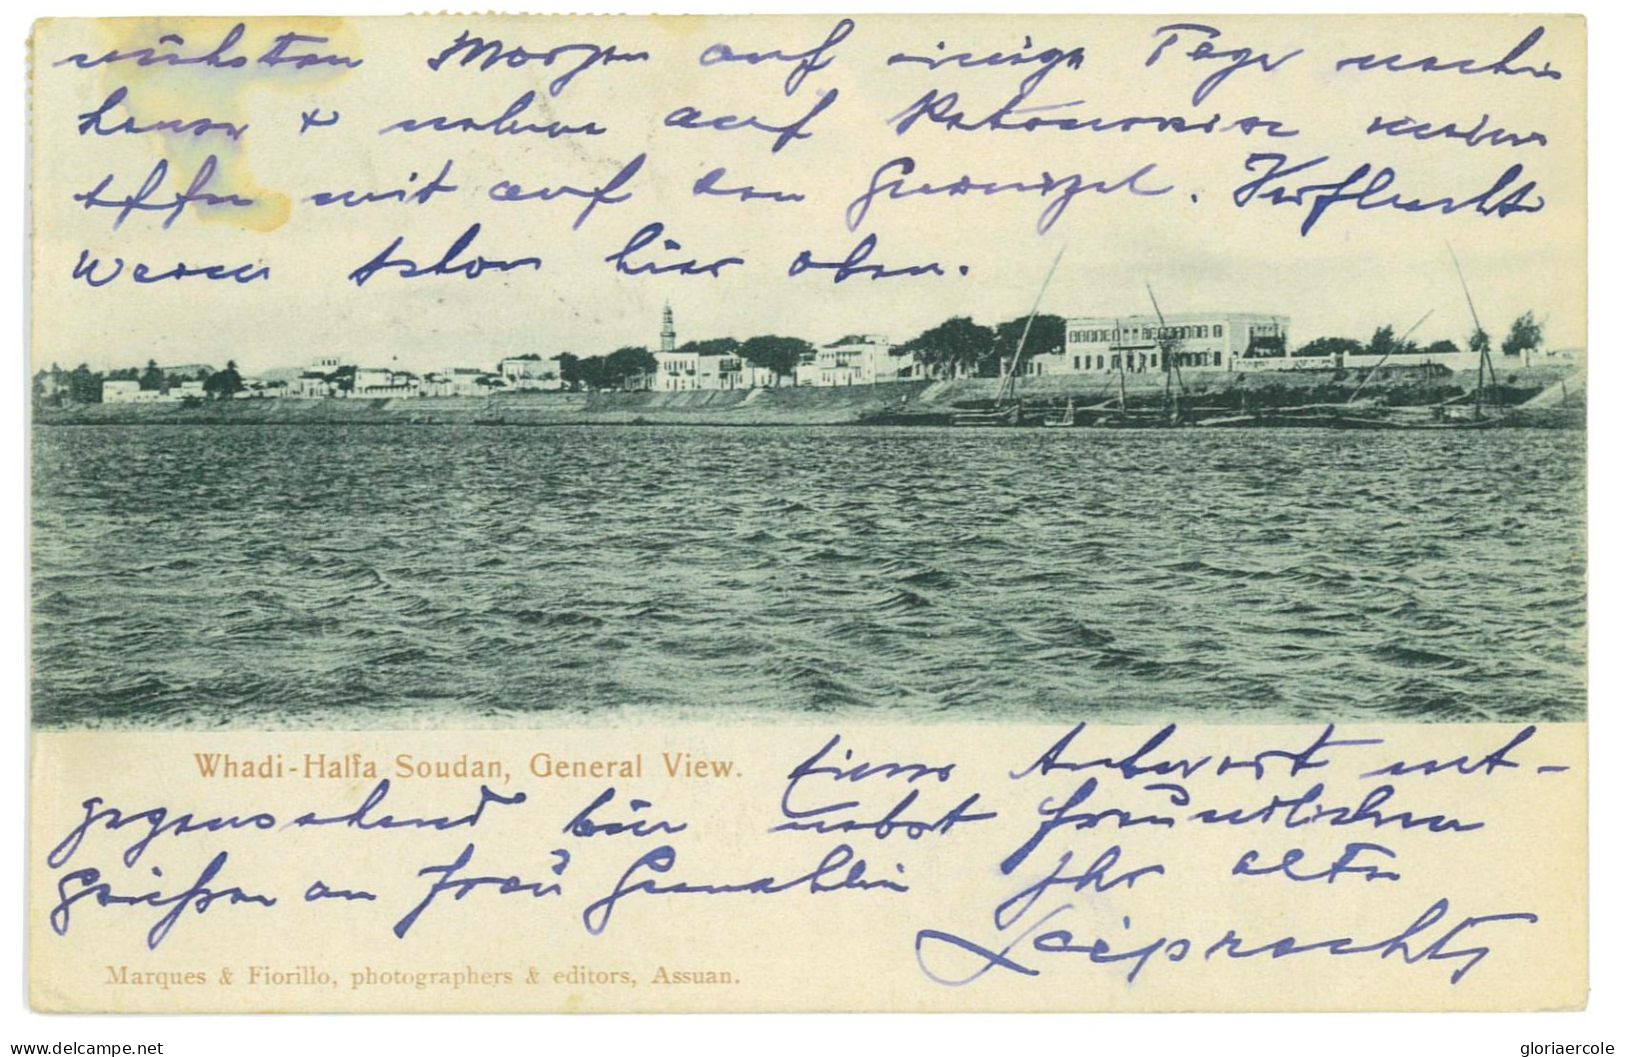 nächsten Morgen auf einige Tage nach
auf
Affen mit auf den . Verflucht
schon hier oben.
Whadi-Halfa Soudan, General View.
Ihrer Antwort ent-
gegensehend bin nebst freundlichen
Grüßen an Frau Gemahlin Ihr alter
Marques & Fiorillo, photographers & editors, Assuan.
delcampe.net
gloriaercole